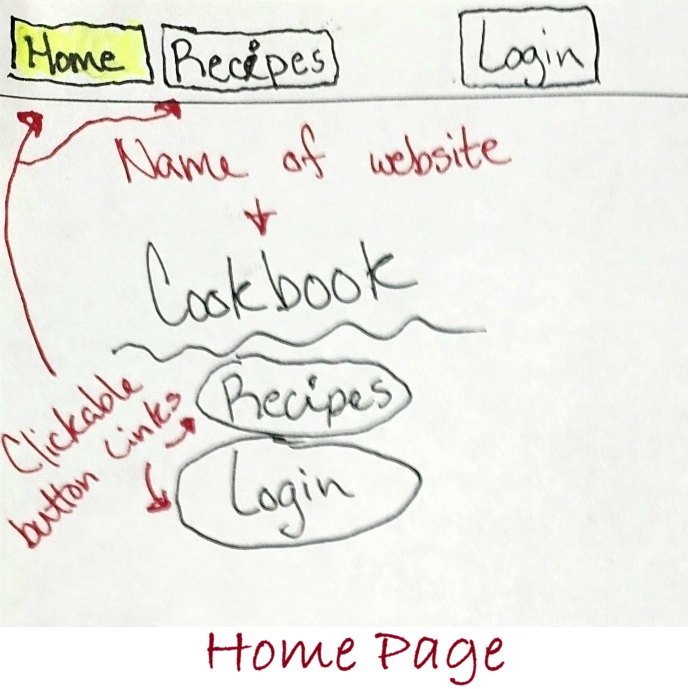 Home Recipes Login
Name of website
Cookbook
Recipes
Clickable
button Links
Login
Home Page